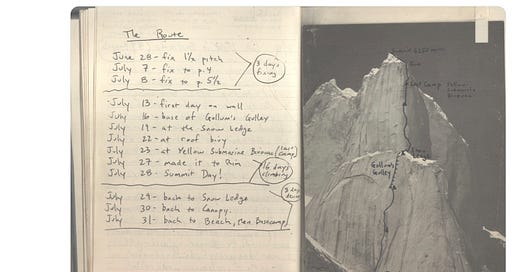 The Route
June 28 - fix 1½ pitch
July 7 - fix to p. 4
July 8 - fix to p. 5½
3 days fixing
July 13 - first day on wall
July 16 - base of Gollum's Gulley
July 19 - at the Snow Ledge
July 22 - at roof bivy
July 23 - at Yellow Submarine Bivouac (Last Camp)
July 27 - made it to Rim
July 28 - Summit Day!
16 days climbing
July 29 - back to Snow Ledge
July 30 - back to Canopy.
July 31 - back to Beach, then Basecamp
3 days
Summit
Rim
Last Camp
Yellow Submarine Bivouac
Gollum's Gulley